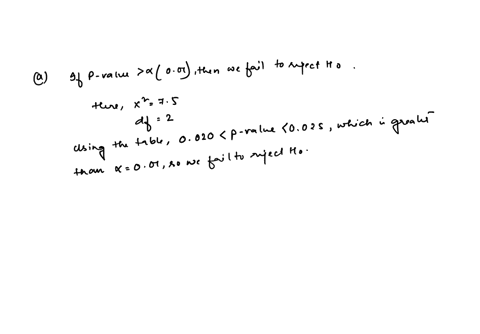 (a) If P-value > α (0.01), then we fail to reject H0.
Here, x² = 7.5
df = 2
Using the table, 0.020 < P-value < 0.025, which is greater
than α = 0.01, so we fail to reject H0.